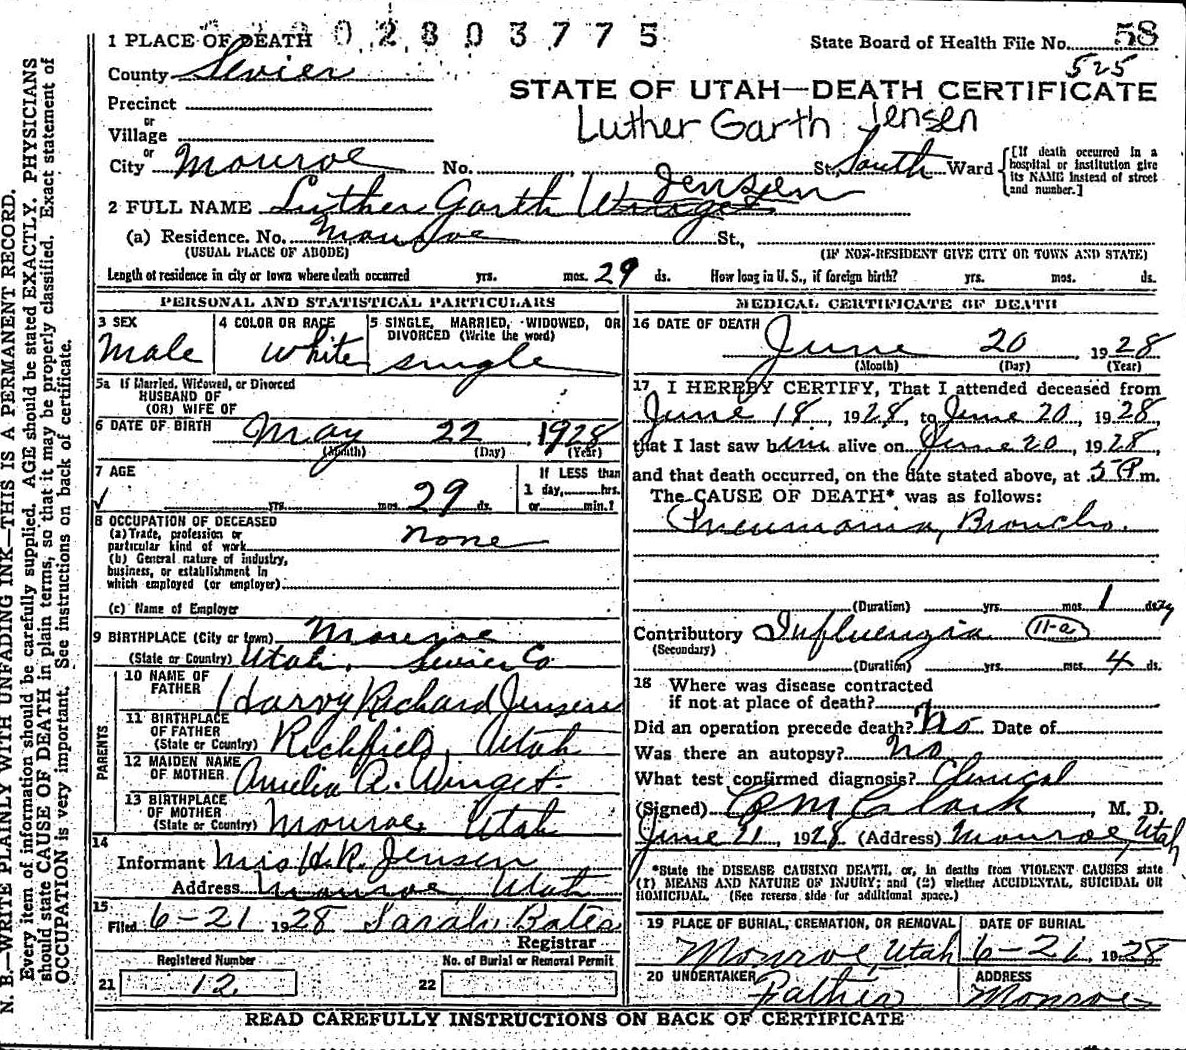 02803775
1 PLACE OF DEATH
State Board of Health File No. 58
County Sevier
525
STATE OF UTAH—DEATH CERTIFICATE
Precinct
or
Village
Luther Garth Jensen
or
City Monroe No. St. South Ward
[If death occurred in a hospital or institution give its NAME instead of street and number.]
Jensen
2 FULL NAME Luther Garth Winget
(a) Residence. No. Monroe St.,
(USUAL PLACE OF ABODE) (IF NON-RESIDENT GIVE CITY OR TOWN AND STATE)
Length of residence in city or town where death occurred yrs. mos. 29 ds. How long in U. S., if foreign birth? yrs. mos. ds.
PERSONAL AND STATISTICAL PARTICULARS
3 SEX Male
4 COLOR OR RACE White
5 SINGLE, MARRIED, WIDOWED, OR DIVORCED (Write the word) single
5a If Married, Widowed, or Divorced
HUSBAND OF
(OR) WIFE OF
6 DATE OF BIRTH May 22 1928
(Month) (Day) (Year)
7 AGE
yrs. mos. 29 ds.
If LESS than
1 day, hrs.
or min.?
8 OCCUPATION OF DECEASED
(a) Trade, profession or
particular kind of work none
(b) General nature of industry,
business, or establishment in
which employed (or employer)
(c) Name of Employer
9 BIRTHPLACE (City or town) Monroe
(State or Country) Utah, Sevier Co
PARENTS
10 NAME OF
FATHER Harvy Richard Jensen
11 BIRTHPLACE
OF FATHER
(State or Country) Richfield, Utah
12 MAIDEN NAME
OF MOTHER Amelia R. Winget.
13 BIRTHPLACE
OF MOTHER
(State or Country) Monroe Utah
14
Informant Mrs H.R. Jensen
Address Monroe Utah
15
Filed 6-21 1928 Sarah Bates
Registrar
Registered Number
21 12
No. of Burial or Removal Permit
22
MEDICAL CERTIFICATE OF DEATH
16 DATE OF DEATH
June 20, 1928
(Month) (Day) (Year)
17 I HEREBY CERTIFY, That I attended deceased from
June 18, 1928, to June 20, 1928,
that I last saw him alive on June 20, 1928,
and that death occurred, on the date stated above, at 5 P. m.
The CAUSE OF DEATH* was as follows:
Pneumonia, Broncho.
(Duration) yrs. mos. 1 day
Contributory Influenzia 11-a
(Secondary)
(Duration) yrs. mos. 4 ds.
18 Where was disease contracted
if not at place of death?
Did an operation precede death? No Date of
Was there an autopsy? No
What test confirmed diagnosis? Clinical
(Signed) Clark, M. D.
June 21, 1928 (Address) Monroe, Utah
*State the DISEASE CAUSING DEATH, or, in deaths from VIOLENT CAUSES state
(1) MEANS AND NATURE OF INJURY; and (2) whether ACCIDENTAL, SUICIDAL OR
HOMICIDAL. (See reverse side for additional space.)
19 PLACE OF BURIAL, CREMATION, OR REMOVAL DATE OF BURIAL
Monroe, Utah 6-21, 1928
20 UNDERTAKER ADDRESS
Father Monroe
READ CAREFULLY INSTRUCTIONS ON BACK OF CERTIFICATE
N. B.—WRITE PLAINLY WITH UNFADING INK—THIS IS A PERMANENT RECORD.
Every item of information should be carefully supplied. AGE should be stated EXACTLY. PHYSICIANS
should state CAUSE OF DEATH in plain terms, so that it may be properly classified. Exact statement of
OCCUPATION is very important. See instructions on back of certificate.